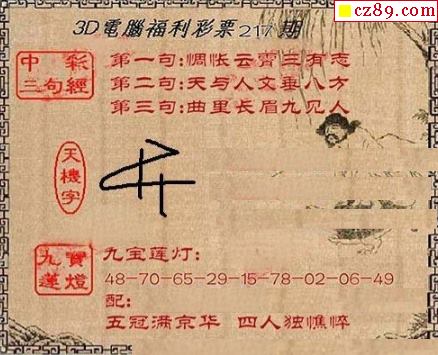 cz89.com
3D電腦福利彩票217期
中彩
三句經
第一句:惆怅云霄三有志
第二句:天与人文垂八方
第三句:曲里长眉九见人
天機字
九寶
蓮燈
九宝莲灯:
48-70-65-29-15-78-02-06-49
配:
五冠满京华 四人独憔悴